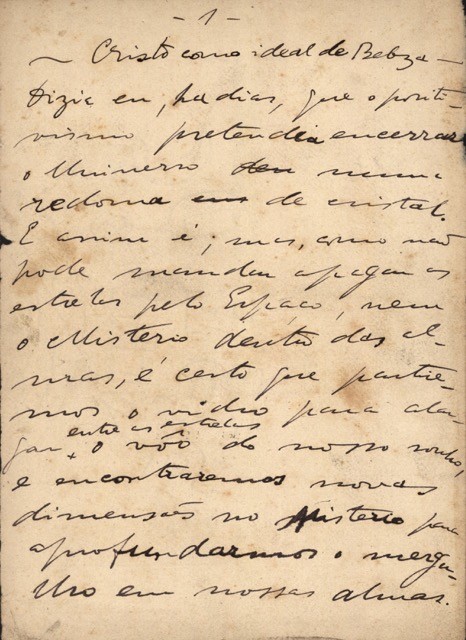 - 1 -
~ Cristo como ideal de Beleza ~
Dizia eu, ha dias, que o positi-
vismo pretendia encerrar
o Universo numa
redoma de cristal.
E assim é; mas, como não
pode mandar apagar as
estrelas pelo Espaço, nem
o Misterio dentro das al-
mas, é certo que partire-
mos o vidro para alar-
entre as estrelas
gar + o vôo do nosso sonho,
e encontraremos novas
dimensões no Misterio para
aprofundarmos o mergu-
lho em nossas almas.